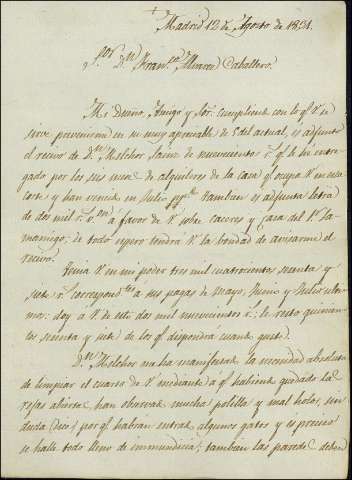 Madrid 12 de Agosto de 1831.
S.or D.n Fran.co Alvarez Caballero.
Mi Dueño, Amigo y Sor: cumpliendo con lo q.e V. se
sirve prevenirme en su muy apreciable de 5 del actual, es adjunto
el recivo de D.n Melchor Sainz de nuevecientos r.s q.e le he entre-
gado por los seis meses de alquileres de la casa q.e ocupa V. en esta
corte y han vencido en Julio pp.do tambien es adjunta letra
de dos mil r.s v.on á favor de V. sobre Caceres y casa del
de todo espero tendrá V. la bondad de avisarme el
recivo.
Tenia V. en mi poder tres mil cuatrocientos sesenta y
siete r.s correspond.tes á sus pagas de Mayo, Junio y Julio ulti-
mas: doy á V. de esto dos mil nuevecientos r.s: le resto quinien-
tos sesenta y siete de los q.e dispondrá cuando guste.
D.n Melchor me ha manifestado la necesidad absoluta
de limpiar el cuarto de V. mediante á q.e habiendo quedado la
rejas abiertas han observado mucha polilla y mal holor, sin
duda (dice) por q.e habran entrado algunos gatos y es preciso
se halle todo lleno de inmundicia; tambien las paredes deben